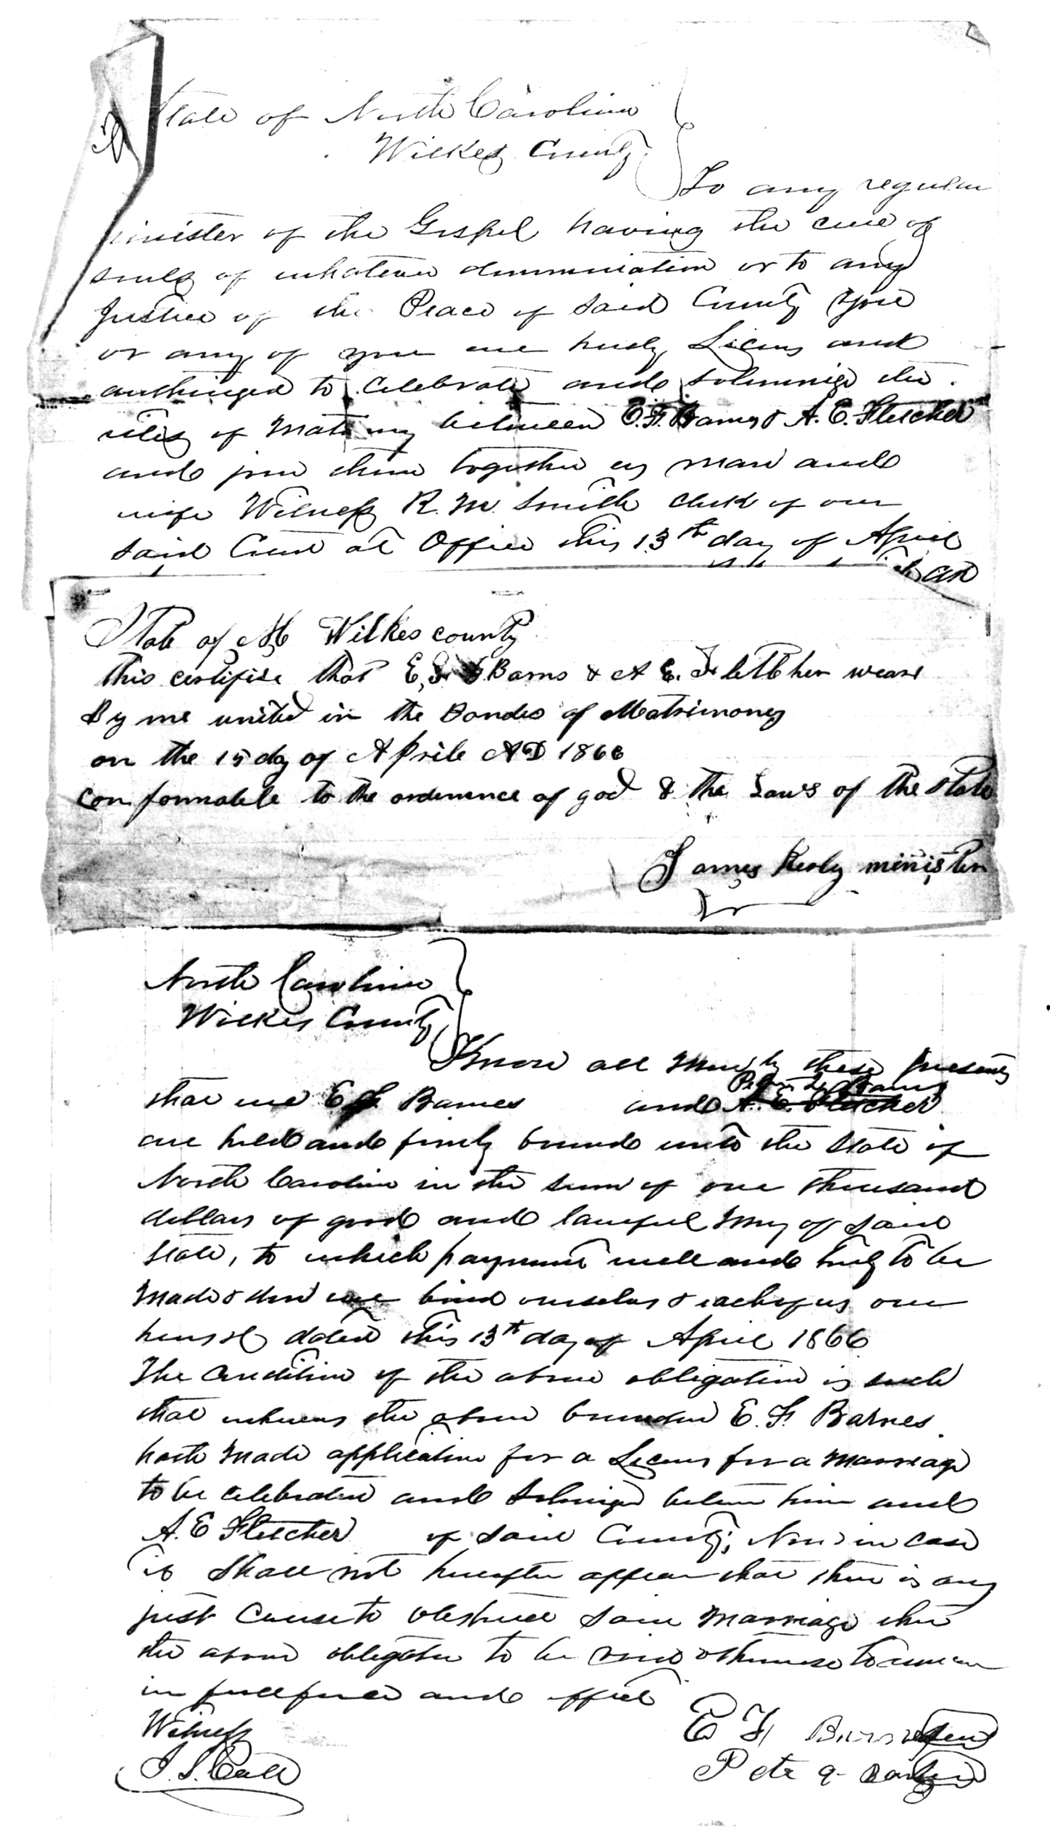 State of North Carolina
Wilkes County
To any regular
minister of the Gospel having the cure of
souls of whatever denomination or to any
Justice of the Peace of said County You
or any of you are hereby Licens and
authorized to celebrate and solemnize the
rites of Matrimony between E. F. Barnes & A. E. Fletcher
and join them together as man and
wife Witness R. M. Smith clerk of our
said Court at Office this 13th day of April
State of NC Wilkes county
this certifise that E, F Barns & A E. Fletcher wear
By me united in the Bondes of Matrimoney
on the 15 day of Aprile AD 1866
conformable to the ordenence of god & the Laws of the State
James minister
North Carolina
Wilkes County
Know all Men by these presents
Barnes
that we E F Barnes and A. E. Fletcher
are held and firmly bound unto the State of
North Carolina in the sum of one thousand
dollars of good and lawful money of said
State, to which payment well and truly to be
made & don we bind ourselves & each of us our
heirs &c dated this 13th day of April 1866
The condition of the above obligation is such
that whereas the above bounden E. F. Barnes
hath made application for a Licens for a marriage
to be celebrated and between him and
A. E Fletcher of said County; Now in case
it shall not hereafter appear that there is any
just cause to obstruct said marriage then
the above obligation to be void otherwise to remain
in full force and effect
Witness
E F Barnes
J. S. Call
Peter